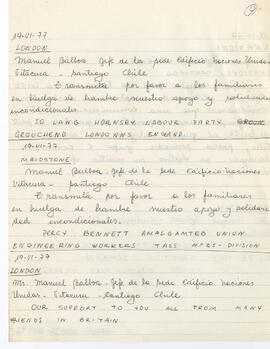 19-VI-77
LONDON
Manuel Balboa. Jefe de la sede Edificio Naciones Unidas
Vitacura - Santiago Chile
Transmita por favor a los familiares
en huelga de hambre nuestro apoyo y solidaridad
incondicionales
JO LANG HORNSBY LABOUR PARTY
GROUCHEND LONDONN8 ENGLAND
19-VI-77
MAIDSTONE
Manuel Balboa. Jefe de la sede Edificio Naciones
Vitacura - Santiago Chile
Transmita por favor a los familiares
en huelga de hambre nuestro apoyo y solidari
dad incondicionales.
PERCY BENNETT AMALGAMTED UNION
ENGINEERING WORKERS TASS DIVISION
19-VI-77
LONDON
Mr. Manuel Balboa. Jefe de la sede Edificio Naciones
Unidas. Vitacura. Santiago Chile
OUR SUPPORT TO YOU ALL FROM MANY
FRIENDS IN BRITAIN